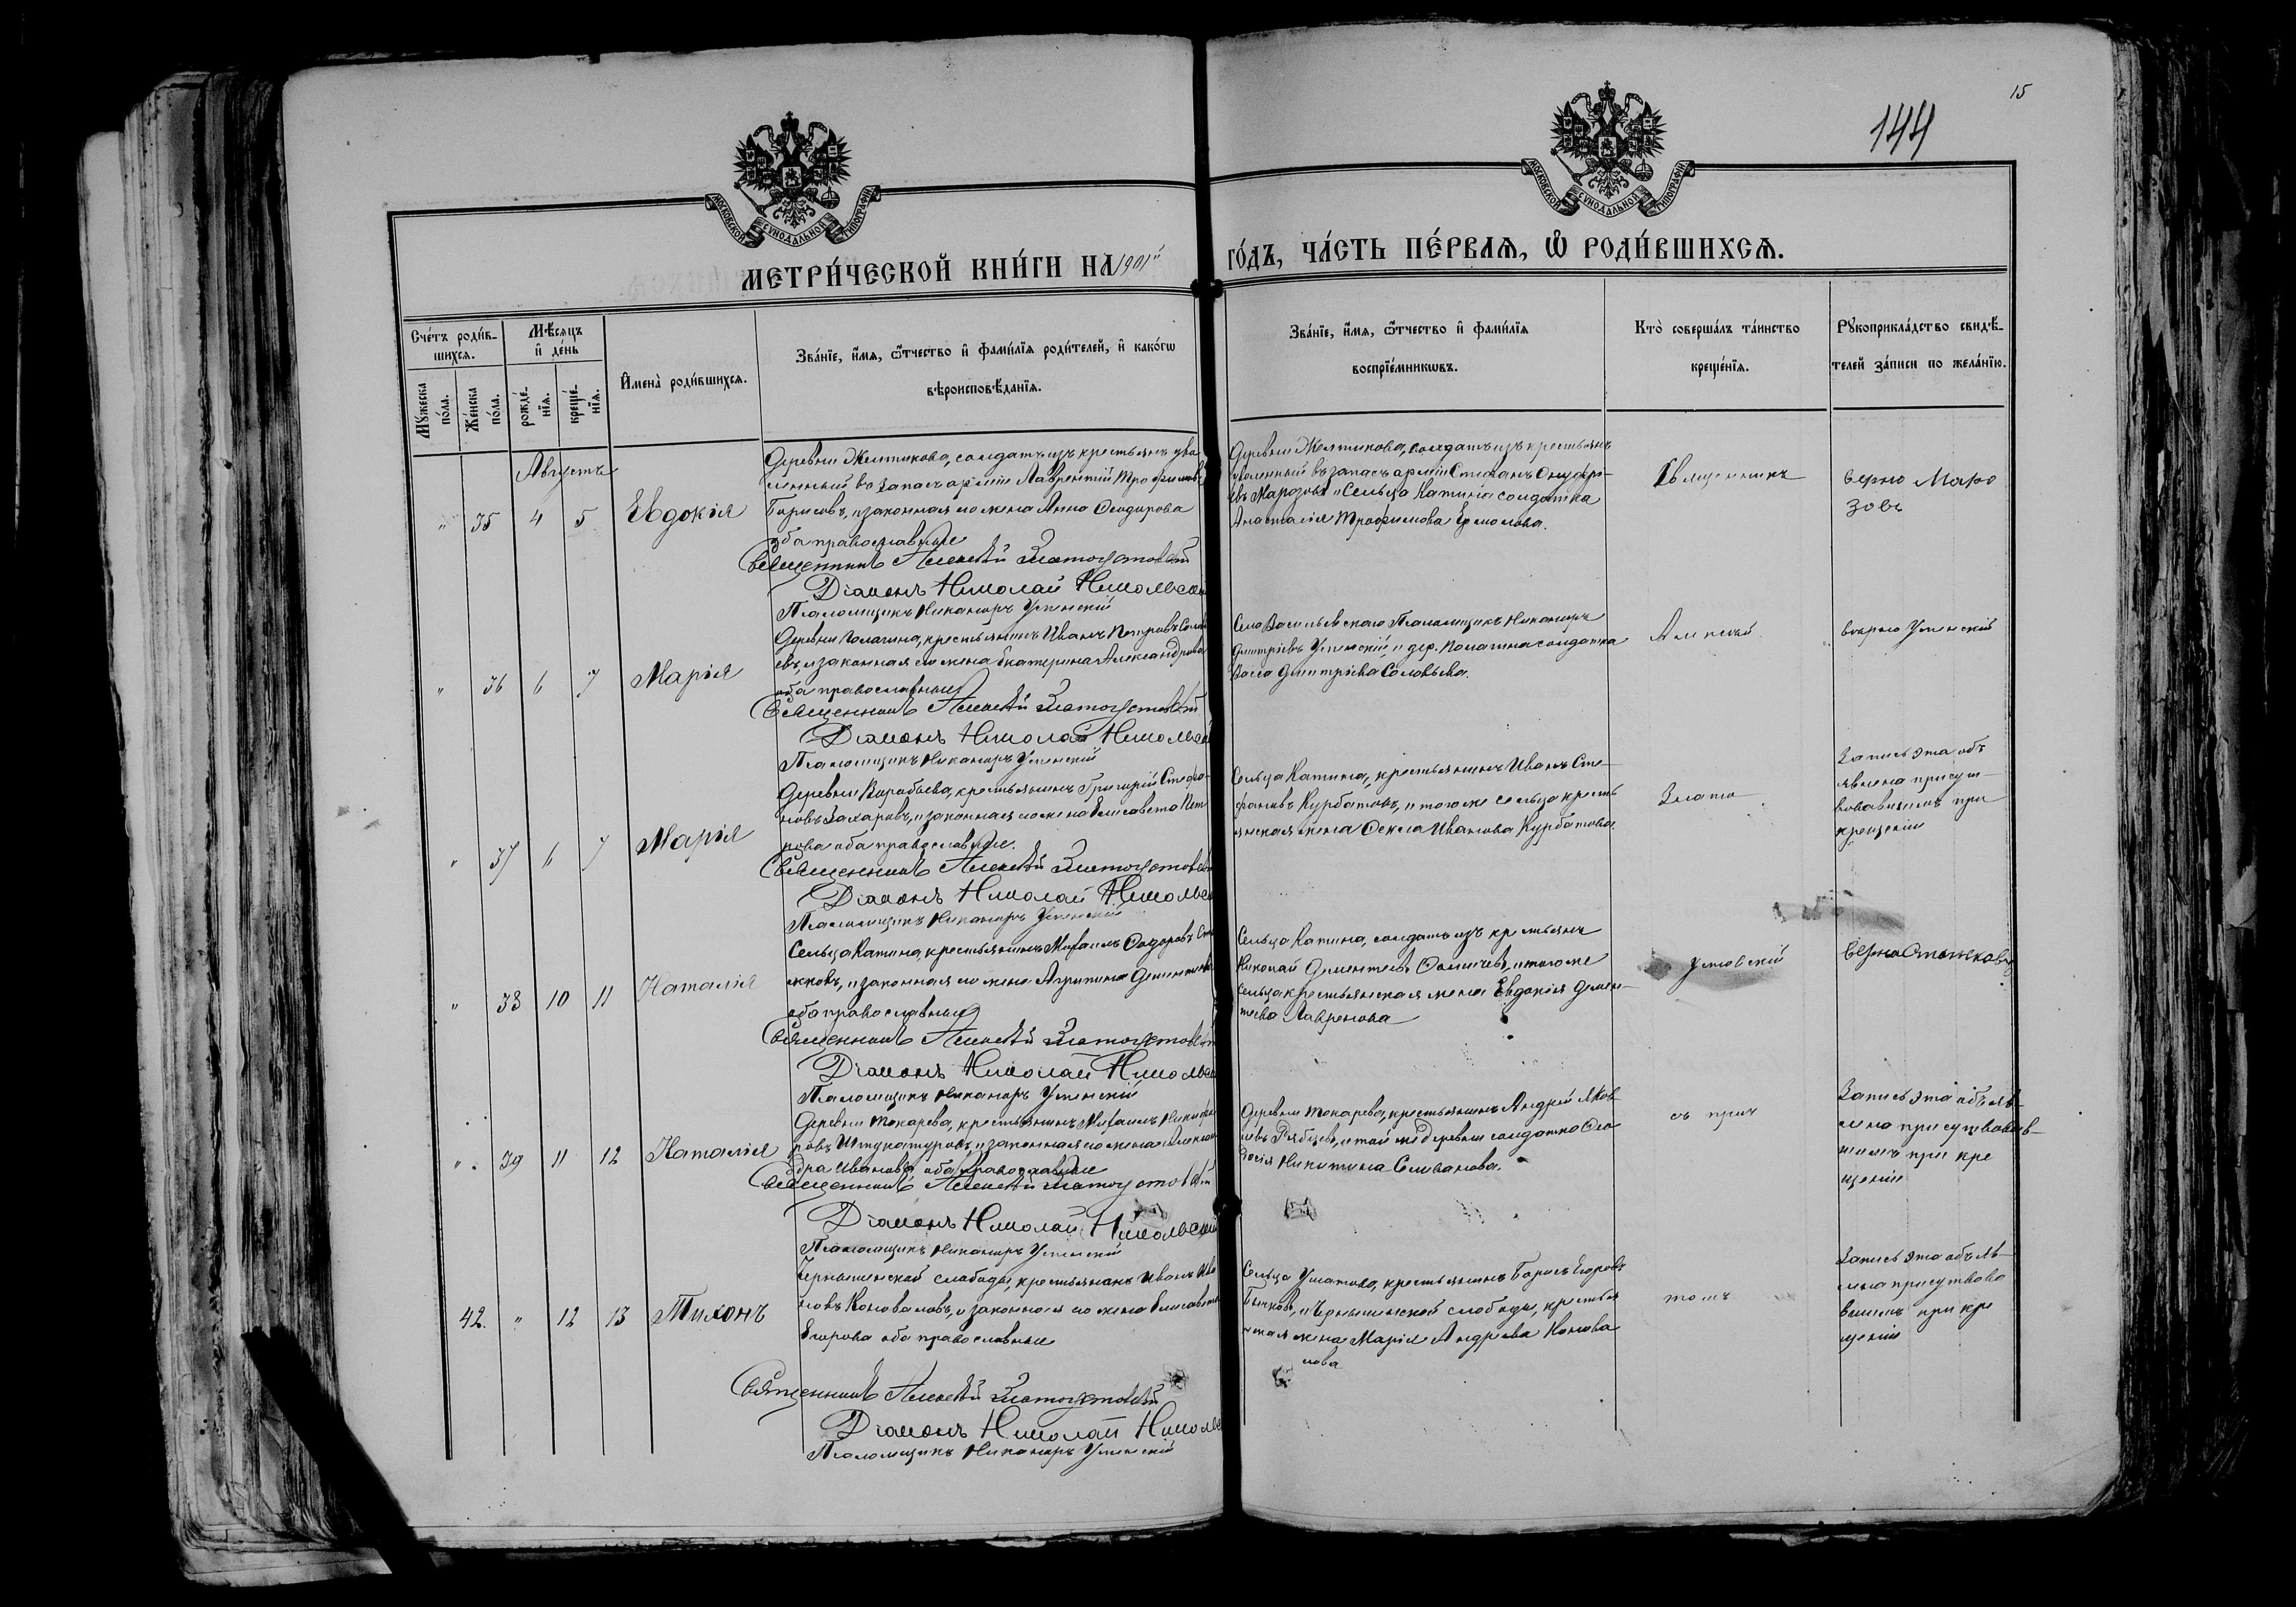 15
144
МОСКОВСКОЙ СѴНОДАЛЬНОЙ ТИПОГРАФІИ
МОСКОВСКОЙ СѴНОДАЛЬНОЙ ТИПОГРАФІИ
МЕТРИ́ЧЕСКОЙ КНИ́ГИ НА 1901й ГО́ДЪ, ЧА́СТЬ ПЕ́РВАЯ, Ѡ҆ РОДИ́ВШИХСѦ.
Сче́тъ роди́в-
шихся.
Мꙋжеска
по́ла.
Же́нска
по́ла.
Мѣ́сяцъ
и҆ де́нь
рожде́-
нїя.
креще́-
нїя.
И҆мена̀ роди́вшихся.
Зва́нїе, и҆́мя, ѻ҆́тчество и҆ фами́лїя роди́телей, и҆ како́гѡ
вѣроисповѣ́данїя.
Зва́нїе, и҆́мя, ѻ҆́тчество и҆ фами́лїя
воспрїе́мникѡвъ.
Кто̀ соверша́лъ та́инство
креще́нїя.
Рꙋкоприкла́дство свидѣ́-
телей за́писи по жела́нїю.
Августъ
" 35 4 5 Евдокія
Деревни Желтикова, солдатъ изъ крестьянъ уво-
ленный въ запасъ арміи Лаврентій Трофимовъ
Борисовъ, и законная его жена Анна Ѳеодорова
оба православные
Священникъ Алексѣй Златоустовскій
Діаконъ Николай Никольскій
Псаломщикъ Никаноръ Успенскій
Деревни Желтикова, солдатъ изъ крестьянъ
уволенный въ запасъ арміи Стефанъ
Марозовъ и Сельца Катина солдатка
Анастасія Трофимова Ермолова.
Священникъ
Верно Моро
зовъ
" 36 6 7 Марія
крестьянинъ Иванъ Петровъ Соловь
евъ, и законная его жена Екатерина Александрова
оба православные
Священникъ Алексѣй Златоустовскій
Діаконъ Николай Никольскій
Псаломщикъ Никаноръ Успенскій
Села Васильевскаго Псаломщикъ Никаноръ
Дмитріевъ Успенскій, и дер. солдатка
Васса Дмитріева Соловьева.
Алексѣй
вѣрно Успенскій
" 37 6 7 Марія
Деревни Воробьева, крестьянинъ Григорій Стефа-
новъ Захаровъ, и законная его жена Елисавета Пет
рова оба православные.
Священникъ Алексѣй Златоустовскій
Діаконъ Николай Никольскій
Псаломщикъ Никаноръ Успенскій
Сельца Катина, крестьянинъ Иванъ Сте-
фановъ Курбатовъ, и того же сельца кресть
янская жена Ѳекла Иванова Курбатова.
Злато
Запись эта объ
явлена присут-
вовавшимъ при
крещеніи
" 38 10 11 Наталія
Сельца Катина, крестьянинъ Михаилъ Ѳедоровъ
и законная его жена Агрипина Дементьева
оба православные
Священникъ Алексѣй Златоустовскій
Діаконъ Николай Никольскій
Псаломщикъ Никаноръ Успенскій
Сельца Катина, солдатъ изъ крестьянъ
Николай Дементьевъ и того же
сельца крестьянская жена Евдокія Демен-
тьева Лавренова
устовскій
Верно
" 39 11 12 Наталія
Деревни Токарева, крестьянинъ Михаилъ Никифо
ровъ Штукатуровъ, и законная его жена Алексан
дра Иванова оба православные
Священникъ Алексѣй Златоустовскій
Діаконъ Николай Никольскій
Псаломщикъ Никаноръ Успенскій
Деревни Токарева, крестьянинъ Андрей Яков
левъ Рябцевъ, и той же деревни солдатка Ѳео
досія Никитина Селиванова.
съ прич
Запись эта объяв-
лена присутвовав-
шимъ при кре
щеніи
42. " 12 13 Тихонъ
Чернышенской слободы, крестьянинъ Иванъ Ива
новъ Коноваловъ, и законная его жена Елисавета
Егорова оба православные
Священникъ Алексѣй Златоустовскій
Діаконъ Николай Никольскій
Псаломщикъ Никаноръ Успенскій
крестьянинъ Борисъ Егоровъ
Бычковъ, и Чернышенской слободы, крестья
нская жена Марія Андреева Конова
лова
томъ
Запись эта объяв-
лена присутвово
вшимъ при кре
щеніи